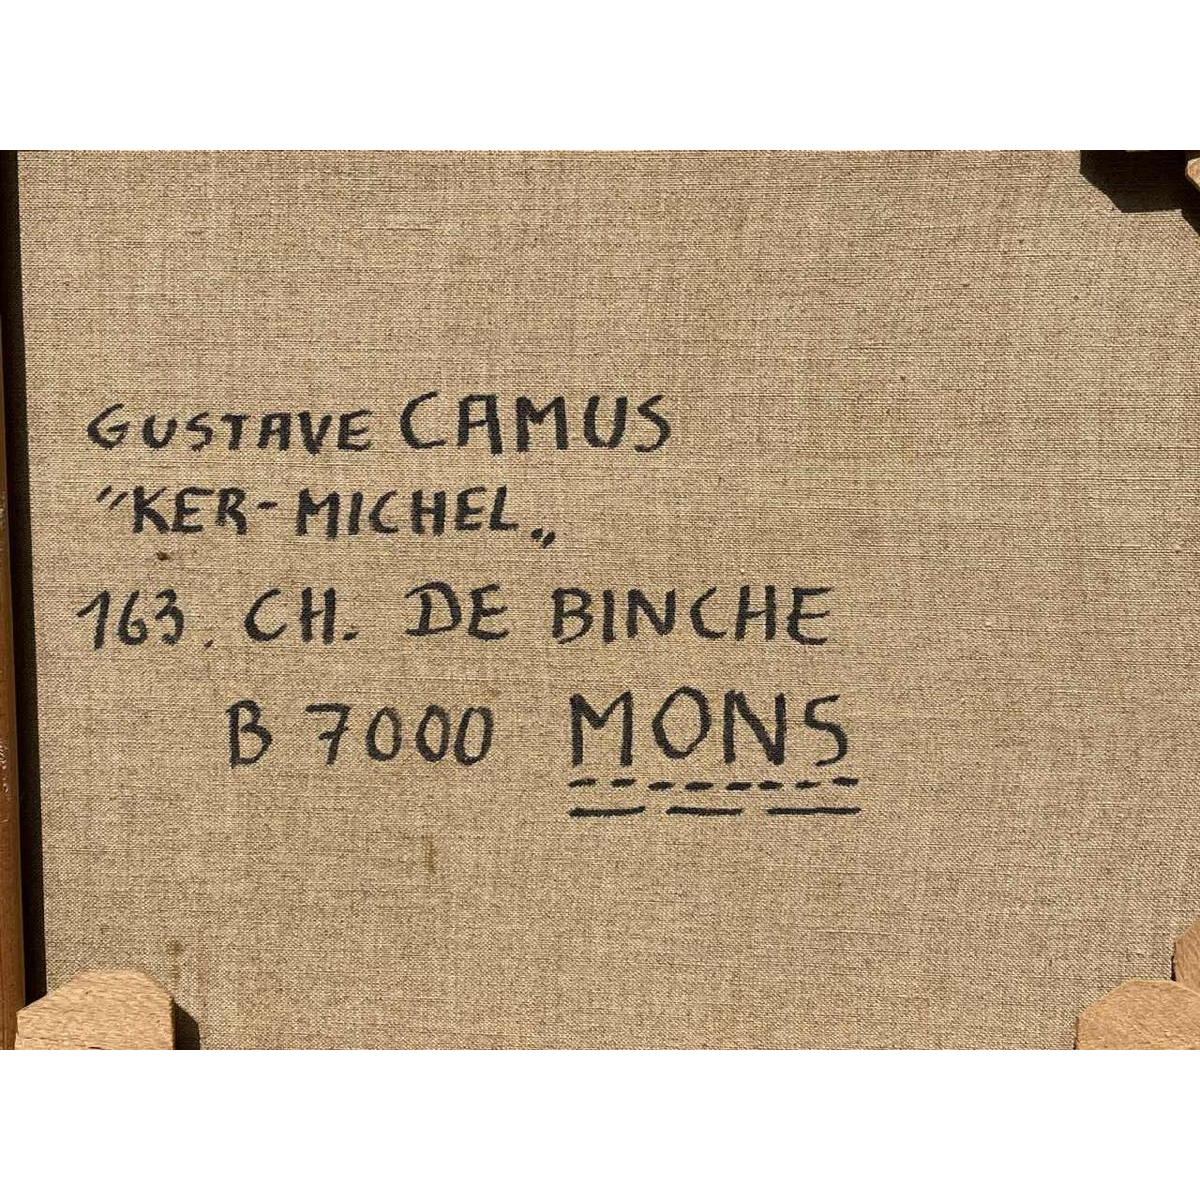 GUSTAVE CAMUS
"KER-MICHEL„
163. CH. DE BINCHE
B 7000 MONS